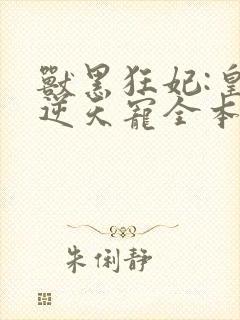 獸黑狂妃:皇
逆天寵全本
朱俐靜